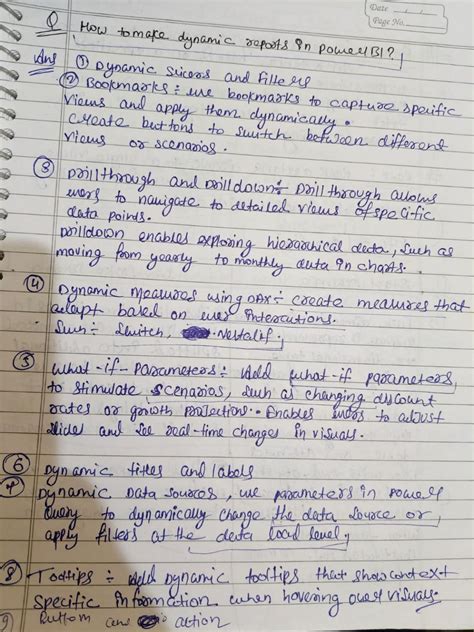 Date
Page No.
Q How to make dynamic reports in powerBI?
Ans ① Dynamic slicers and filters
② Bookmarks÷ use bookmarks to capture specific
views and apply them dynamically.
create buttons to switch between different
views or scenarios.
③ Drillthrough and Drilldown÷ Drillthrough allows
users to navigate to detailed views of specific
data points.
Drilldown enables exploring hierarchical data, such as
moving from yearly to monthly data in charts.
④ Dynamic Measures using DAX÷ create measures that
adapt based on user interactions.
Such÷ Switch, NestedIf,
⑤ What-if-Parameters÷ Add what-if parameters
to stimulate scenarios, such as changing discount
rates or growth projections. Enables users to adjust
slides and see real-time changes in visuals.
⑥ Dynamic titles and labels
⑦ Dynamic Data Sources, use parameters in Power
query to dynamically change the data source or
apply filters at the data load level,
⑧ Tooltips ÷ Add Dynamic tooltips that show context
specific information when hovering over visuals.
⑨ Button and action